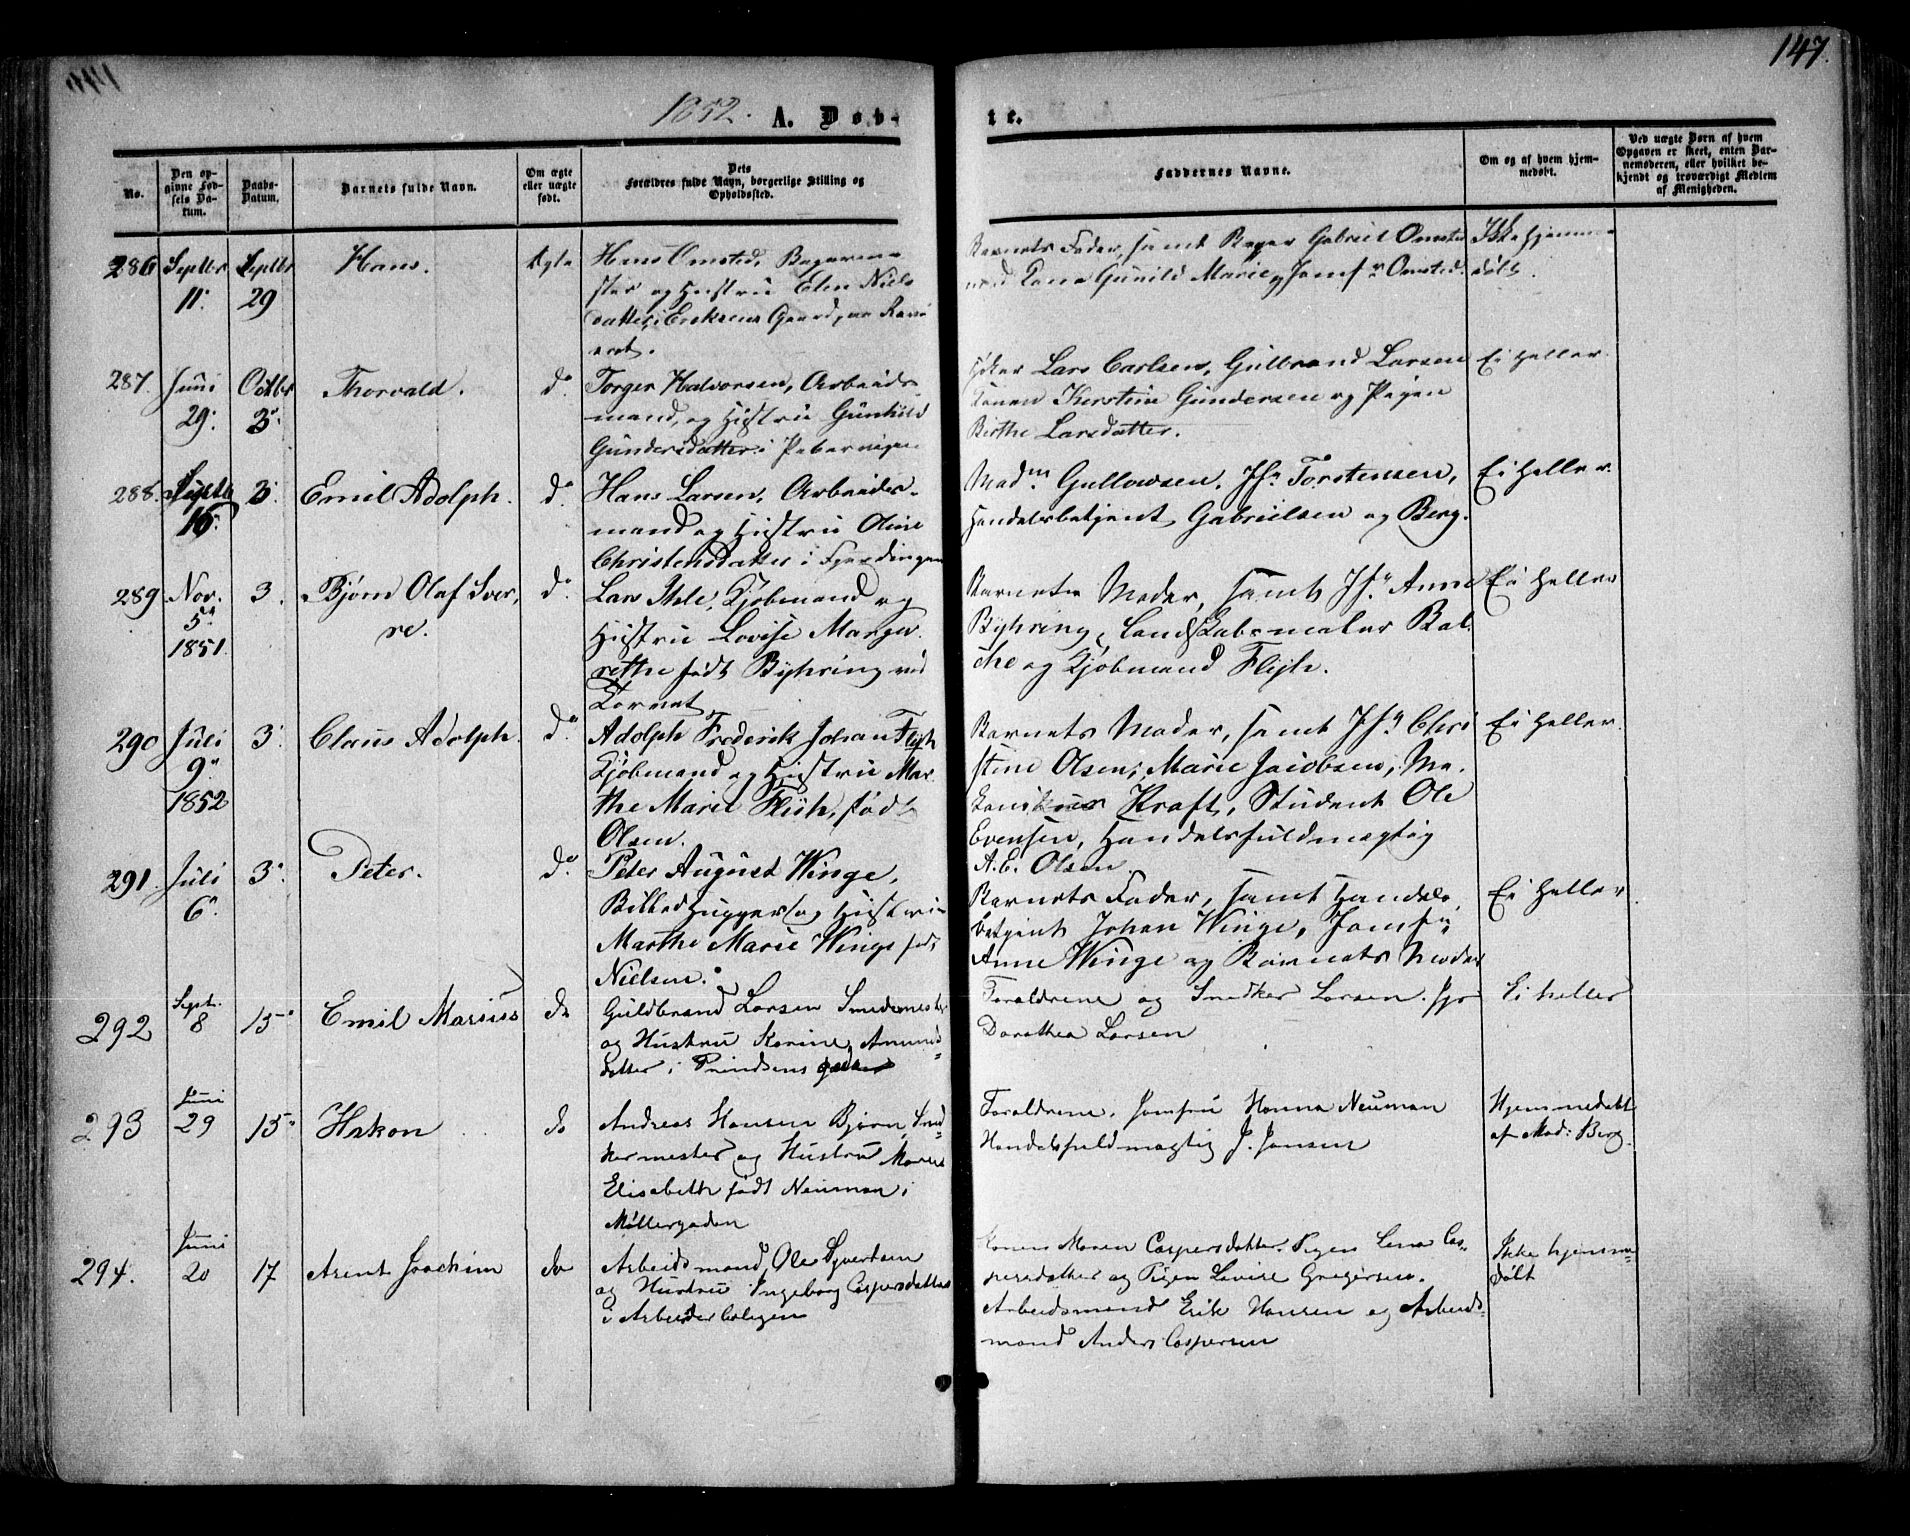 147.
1852. A. Døb-
te.
No.
Den op-
givne Fød-
sels Da-
tum.
Daabs-
Datum.
Barnets fulde Navn.
Om ægte
eller uægte
født.
Dets
Forældres fulde Navn, borgerlige Stilling og
Opholdssted.
Faddernes Navne.
Om og af hvem hjem-
medøbt.
Ved uægte Børn af hvem
Opgaven er skeet, enten Bar-
nemoderen, eller hvilket be-
kjendt og troværdigt Medlem
af Menigheden.
286 Septbr 11. Septbr 29 Hans. Ægte
Hans Omsted, Bagerme-
ster og Hustru Elen Niels
datter, i Eriksens Gaard,
Barnets Fader, samt Bager Gabriel Omsted
Kone Gunild Marie og Jomfr Omsted.
Ikke hjemme-
døbt.
287. Juni 29. Octbr 3. Thorvald. do
Torger Halvorsen, Arbeids-
mand, og Hustru Gunhild
Gundersdatter i Pebervigen
Lars Carlsen, Gulbrand Larsen
Konen Kerstine Gundersen og Pigen
Birthe Larsdatter.
Ei heller.
288. Septb 16. 3. Emil Adolph. do
Hans Larsen, Arbeids-
mand og Hustru Oline
Christensdatter i Fjerdingen
Madm Gullowsen, Jfr Torstensen,
Handelsbetjent Gabrielsen og Berg.
Ei heller.
289 Nov. 5. 1851. 3. Bjørn Olaf Sver-
re. do
Lars Ihle, Kjøbmand og
Hustru Lovise Marga-
rethe født Byhring ved
Torvet
Barnets Moder, samt Jfr Anne
Byhring, Landskabsmaler Bal-
che og Kjøbmand Flijh.
Ei heller
290 Juli 9 1852 3. Claus Adolph. do
Adolph Frederik Johan Flijh
Kjøbmand og Hustru Mar-
the Marie Flijh, født
Olsen.
Barnets Moder, samt Jfr Chri
stine Olsen, Marie Jacobsen, Me-
kanikus Kraft, Student Ole
Evensen, Handelsfuldmægtig
A. E. Olsen.
Ei heller.
291. Juli 6 3. Peter. do
Peter August Winge,
Billedhugger og Hustru
Marthe Marie Winge født
Nielsen.
Barnets Fader, samt Handels-
betjent Johan Winge, Jomfr
Anne Winge og Barnets Moder
Ei heller
292 Sept. 8 15 Emil Marius do
Guldbrand Larsen Smedemester
og Hustru Karine Amund-
datter i Prindsens gaden
Forældrene og Snedker Larsen. Jfr
Dorothea Larsen
Ei heller
293 Juni 29 15 Hakon do
Andreas Hansen Bjørn, Sned-
kermester og Hustru Maren
Elisabeth født Neuman i
Møllergaden
Forældrene. Jomfru Hanna Neuman
Handelsfuldmægtig J. Jansen
Hjemmedøbt
af Mad: Berg.
294. Juni 20 17 Arent Joachim do
Arbeidsmand Ole Syvertsen
og Hustru Ingeborg Caspersdatter
i Arbeiderboligen
Konen Maren Caspersdatter. Pigen Lena Cas-
persdatter og Pigen Lovise Gregersen.
Arbeidsmand Erik Hansen og Arbeids-
mand Anders Caspersen
Ikke hjemme-
døbt